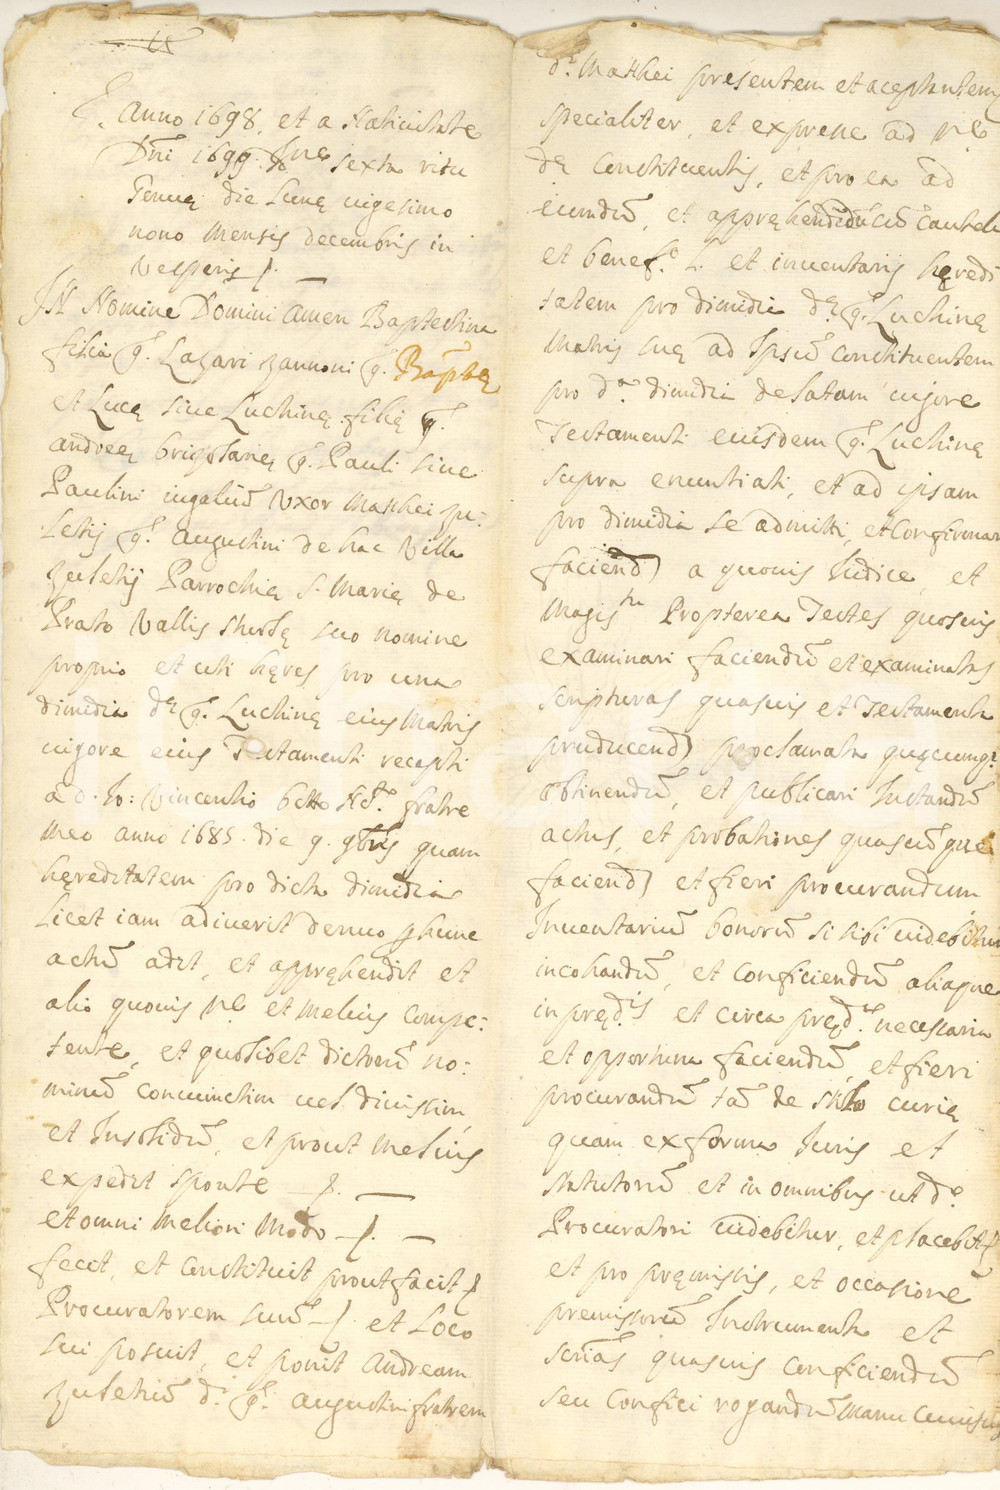 Anno 1698, et a Nativitate
Dñi 1699. Ine sexta ritu
Genuę die Lunę vigesimo
nono Mensis decembris in
Vesperis /. —
IN Nomine Domini Amen Baptestina
filia q. Lazari Zannoni q. Baptę
et Lucę sive Luchinę filię q.
andreę brigolarię q. Pauli sive
Paulini iugaliũ Uxor Matthei zu:
letij q. Augustini de hac Villa
Zuletij Parrochię S. Marię de
Prato Vallis sturlę suo nomine
proprio et uti hęres pro una
dimidia dę q. Luchinę eius Matris
vigore eius Testamenti recepti
a d. Io: Vincentio betto Not.º fratre
meo anno 1685. die 9. 9bris quam
hęreditatem pro dicta dimidia
licet iam adiverit denuo p hunc
actũ adit, et appręhendit et
alio quovis nē et melius compe:
tente, et quolibet dictorũ no:
minũ coniunctim vel divisim,
et Insolidũ, et prout melius
expedit sponte —/. —
et omni meliori modo —/. —
fecit, et constituit prout facit /
Procuratorem suũ —/. et Loco
sui posuit, et ponit Andream
Zuletiũ d. q. Augustini fratrem
d. Matthei presentem et aceptantem
specialiter, et expresse ad nē
dę Constituentis, et pro ea ad
eumdũ, et appręhendendũ cũ cautela
et benef.º L. et inventarij hęredi
tatem pro dimidia dę q. Luchinę
Matris suę ad Ipsũ constituentem
pro d.ª dimidia delatam vigore
Testamenti eiusdem q. Luchinę
supra enuntiati, et ad ipsam
pro dimidia se admitti, et Confirmari
faciend) a quovis Iudice, et
Magis.tu Propterea Testes quosvis
examinari faciendũ et examinatos
scripturas quasvis et Testamenta
producend) proclamata quęcumq.
obtinendũ, et publicari Instandũ
actus, et probationes quascũque
faciend) et fieri procurandum
Inventariũ bonorũ si sibi videbitur
incohandũ, et conficiendũ aliaque
in pręd.is et circa pręd.ª necessaria
et opportuna faciendũ, et fieri
procurandũ tã de stilo curię
quam ex forma Iuris et
Statutorũ et in omnibus ut d.º
Procuratori videbitur, et placebit /
et pro pręmissis, et occasione
premissorũ Instrumenta et
scrias quasvis conficiendũ
seu Confici rogandũ Manu Cuiusvis